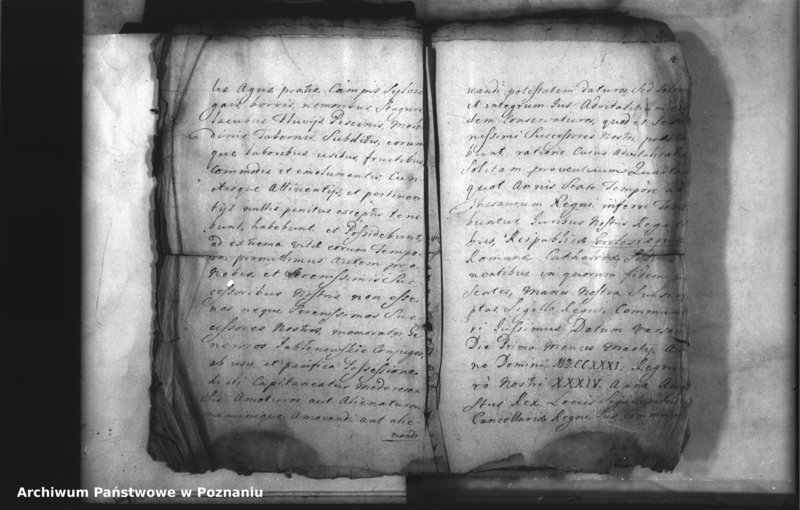 lis Agris, pratis Campis Sylvis
gais borris, nemoribus, Stagnis
lacubus Fluvijs Piscinis, Molen
dinis Tabernis Subditis, eorum
que laboribus usibus, fructibus,
Commodis et emolumentis, Cun
ctisque Attinentijs, et pertinen
tijs nullis penitus exceptis tene
bunt, habebunt, et Possidebunt,
ad extrema vitæ eorum Tempo
ra, promittimus autem pro
Nobis, et Serenissimis Suc
cessoribus Nostris non esse
nos neque Serenissimos Suc
cessores Nostros, memoratos Ge
nerosos Conjuges
ab usu et pacifica Possessione
dicti Capitaneatus
Sis Amoturos aut Alienaturos
neminique Amovendi aut alie
nandi
nandi potestatem daturos Sed Salvum
et integrum Jus
dem Conservaturos, quod et Sere
nissimi Successores Nostri præsta
bunt, ratione Cujus
Solitam proventuum Quartam
quot Annis Stato Tempore ad
Thesaurum Regni inferre Tene
buntur, Juribus Nostris Rega
libus, Reipublicæ Ecclesiæque
Romanæ Catholicæ
nentibus in quorum fidem
sentes, Manu Nostra Subscri
ptas Sigillo Regni Communi
ri Jussimus Datum
Die Prima Mensis Martij, An
no Domini MDCCXXXI. Regni
rò Nostri XXXIV. Anno Augu
stus Rex Locus Sigilli
Cancellariæ Regni